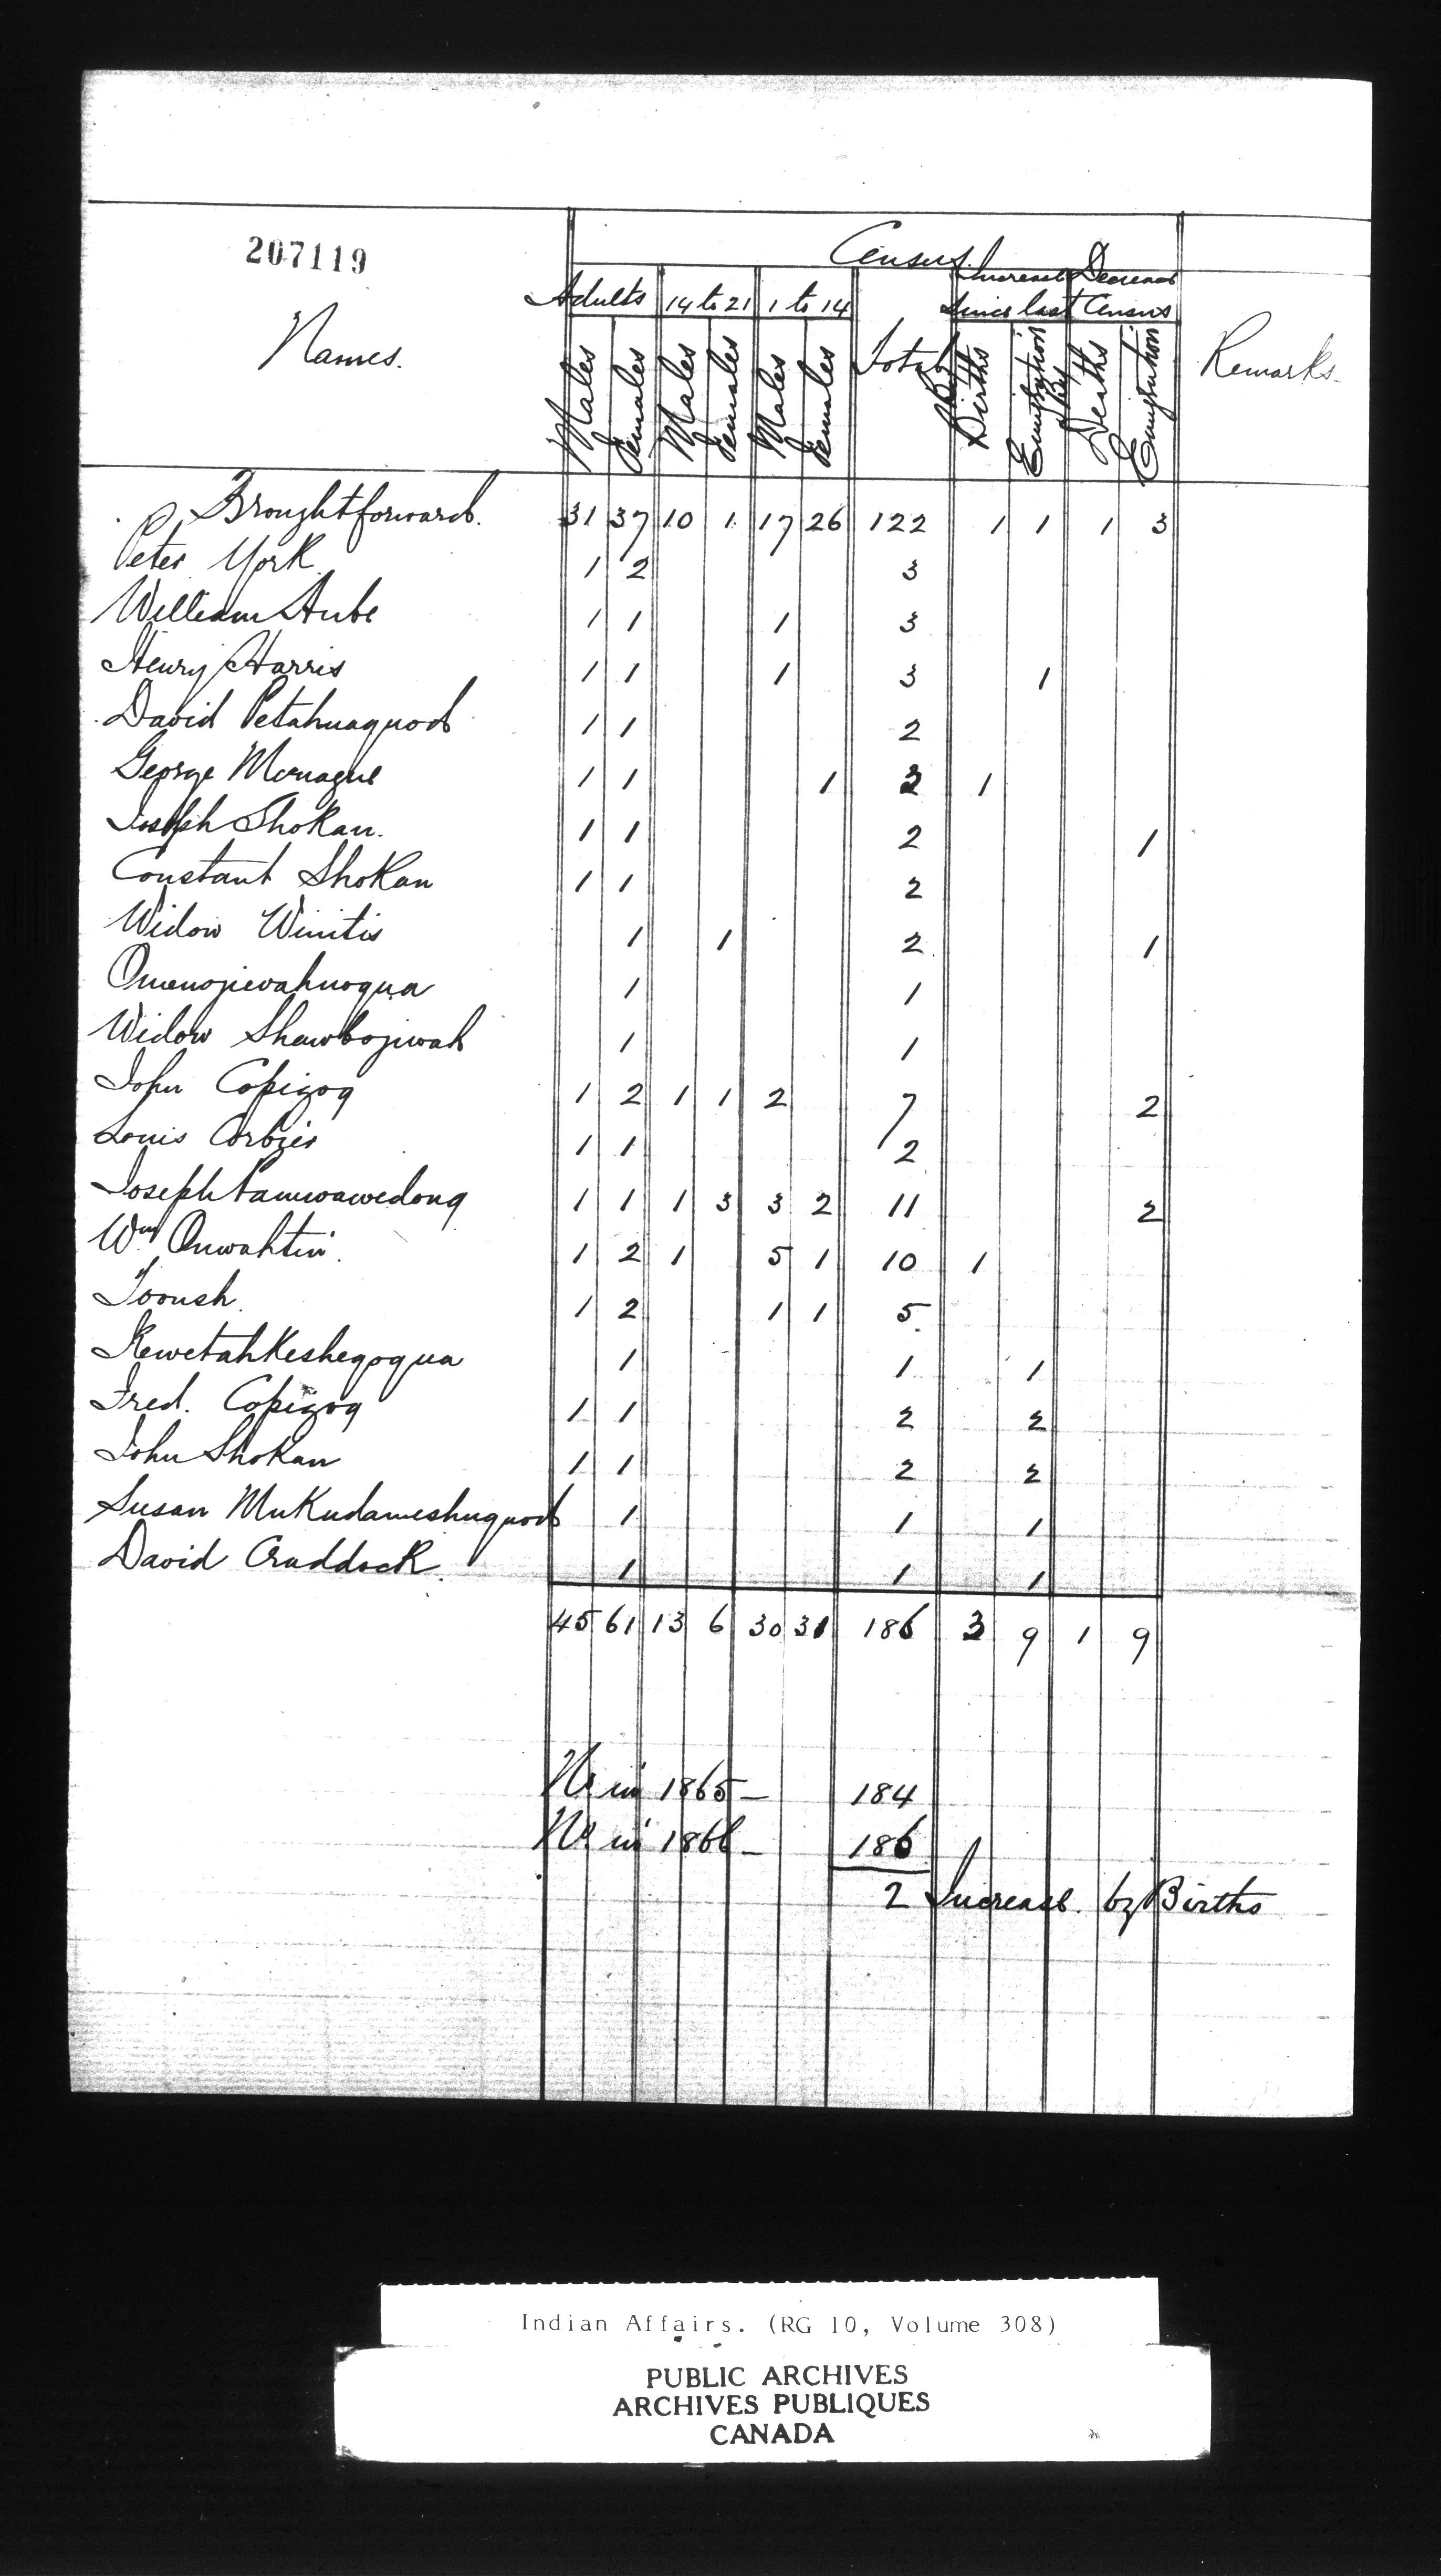 207119
Census.
Increase Decrease
Adults 14 to 21 1 to 14 Since last Census
Names. Males Females Males Females Males Females Total By Births Emigration By Deaths Emigration Remarks.
Brought forward. 31 37 10 1 17 26 122 1 1 1 3
Peter York 1 2 3
William Aube 1 1 1 3
Henry Harris 1 1 1 3 1
David Petahuaquod 1 1 2
George Monague 1 1 1 3 1
Joseph Shokan. 1 1 2 1
Constant Shokan 1 1 2
Widow Winitis 1 1 2 1
1 1
Widow Shawbojiwah 1 1
John Copigog 1 2 1 1 2 7 2
Louis Corbier 1 1 2
Joseph Pamwawedong 1 1 1 3 3 2 11 2
Wm Onwahtin. 1 2 1 5 1 10 1
Tooush. 1 2 1 1 5
Kewetahkeshegoqua 1 1 1
Fred. Copigog 1 1 2 2
John Shokan 1 1 2 2
Susan Mukudameshuquod 1 1 1
David Craddock. 1 1 1
45 61 13 6 30 31 186 3 9 1 9
No in 1865 — 184
No in 1866 — 186
2 Increase by Births
Indian Affairs. (RG 10, Volume 308)
PUBLIC ARCHIVES
ARCHIVES PUBLIQUES
CANADA